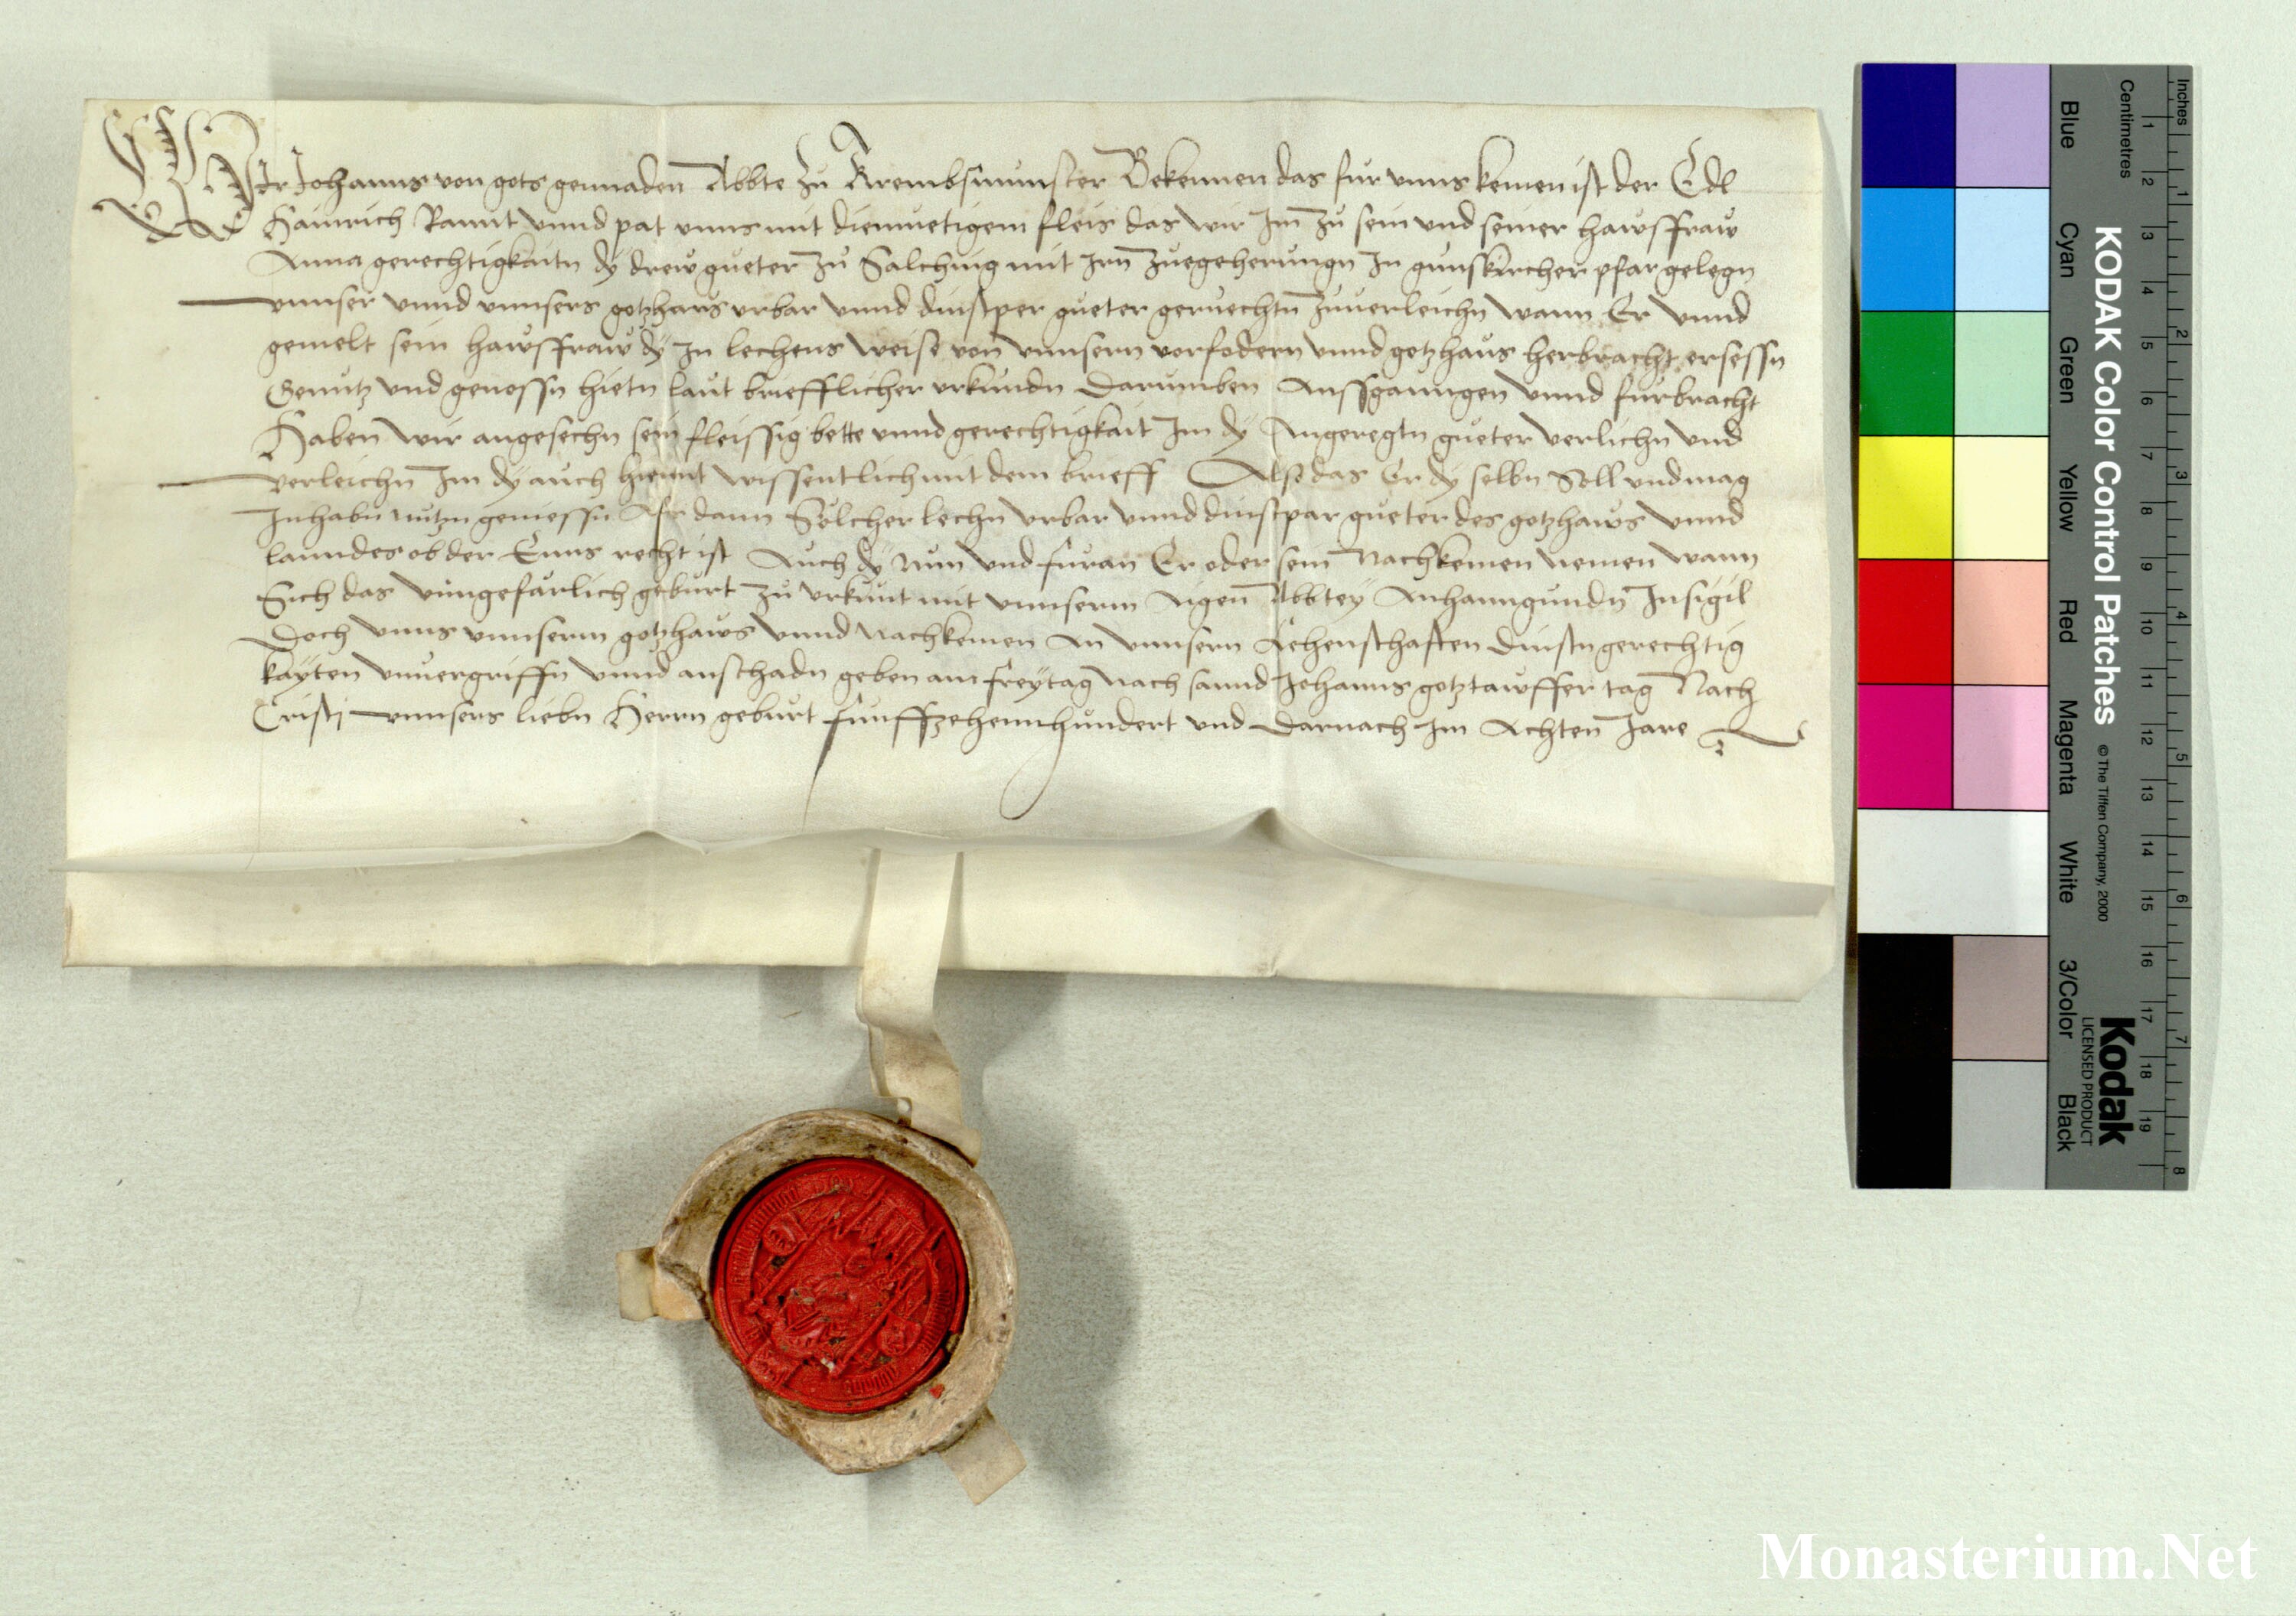 Wir Johanns von gots gennaden Abbte zu Krembsmunster Bekennen das fur vnns kemen ist der Edl
Hainrich Rannt vnnd pat vnns mit diemuetigem fleis das wir Im zu sein vnd seiner hawsfraw
Anna gerechtigkaitn dy drew gueter zu Salching mit Irn zuegeherungn In gunskircher pfar gelegn
vnnser vnnd vnnsers gotzhaws vrbar vnnd dinstper gueter geruechtn zuuerleichn wann Er vnnd
gemelt sein hawsfraw dy In lechens weise von vnnsern vorfodern vnnd gotzhaus herbracht ersessn
Genutz vnd genossn hietn laut briefflicher vrkundn darumben Aussganngen vnnd furbracht
Haben wir angesechn sein fleissig bette vnnd gerechtigkait Im dy Angeregtn gueter verlichn vnd
verleichn Im dy auch hiemit wissentlich mit dem brieff Also das Er dy selbn Soll vnd mag
Inhabn nutzn geniessn Als dann Solcher lechn vrbar vnnd dinstpar gueter des gotzhaws vnnd
lanndes ob der Enns recht ist Auch dy nun vnd furan Er oder sein nachkemen nemen wann
Sich das vnngefarlich geburt zu vrkunt mit vnnserm Aigen Abbtey Anhanngundn Insigil
Doch vnns vnnserm gotzhaws vnnd nachkemen An vnnsern Lehenschafften dinstn gerechtig
kayten vnuergriffn vnnd an schadn geben am freytag nach sannd Johanns gotztawffer tag Nach
Cristj vnnsers liebn Herrn geburt funffzehennhundert vnd darnach Im Achten Jare
Inches
Centimetres
1 2 3 4 5 6 7 8
1 2 3 4 5 6 7 8 9 10 11 12 13 14 15 16 17 18 19
KODAK Color Control Patches © The Tiffen Company, 2000
Kodak
LICENSED PRODUCT
Blue Cyan Green Yellow Red Magenta White 3/Color Black
Monasterium.Net